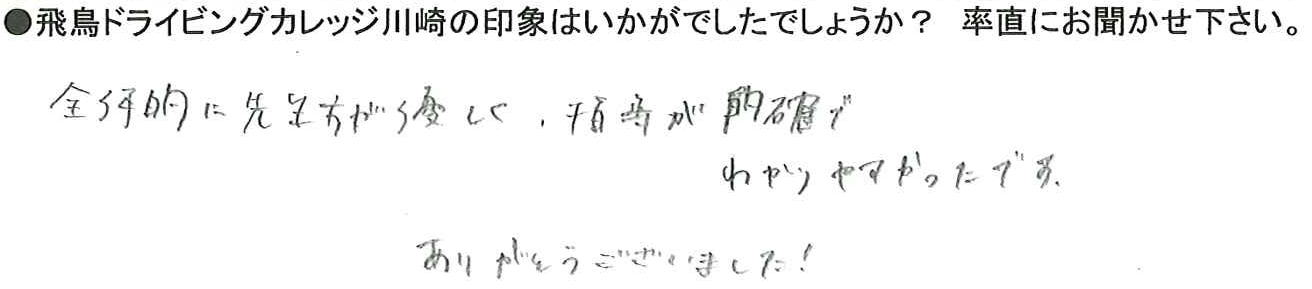 ●飛鳥ドライビングカレッジ川崎の印象はいかがでしたでしょうか？ 率直にお聞かせ下さい。
全体的に先生方が優しく、指導が的確で
わかりやすかったです。
ありがとうございました！